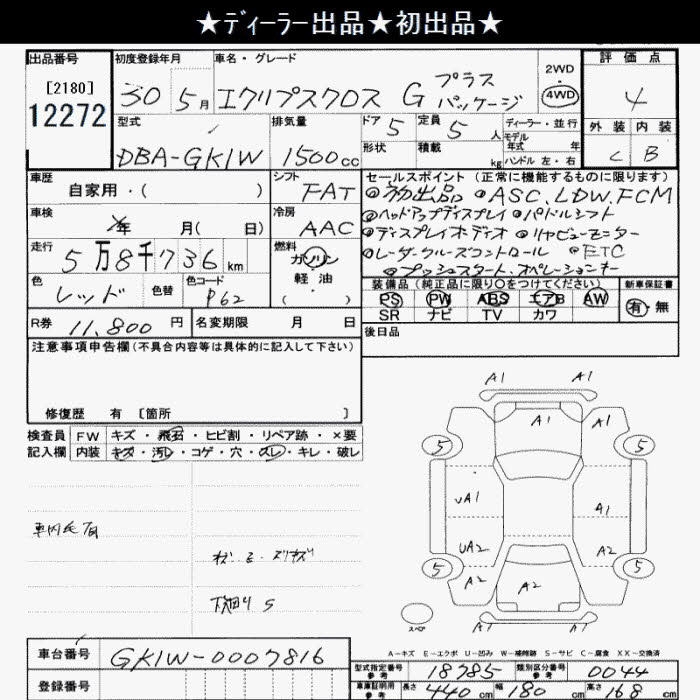 ★ディーラー出品★初出品★
出品番号
[2180]
12272
初度登録年月
30 5月
車名・グレード
エクリプスクロス G プラスパッケージ
2WD
4WD
評価点
4
外装 内装
C B
型式
DBA-GK1W
排気量
1500cc
ドア 5
定員 5人
形状
積載 kg
ディーラー・並行
モデル年式 年
ハンドル 左・右
車歴
自家用・( )
シフト
FAT
車検
年 月( 日)
冷房
AAC
走行
5万8千736km
燃料
ガソリン
軽油
( )
色
レッド
色替
色コード
P62
R券 11,800円
名変期限 月 日
セールスポイント(正常に機能するものに限ります)
◎初出品 ◎ASC.LDW.FCM
◎ヘッドアップディスプレイ ◎パドルシフト
◎ディスプレイオーディオ ◎リヤビューモニター
◎レーダークルーズコントロール ◎ETC
◎プッシュスタート.オペレーションキー
装備品(純正品に限り○をつけてください)
PS PW ABS エアB AW
SR ナビ TV カワ
新車保証書
有・無
後日品
注意事項申告欄(不具合内容等は具体的に記入して下さい)
修復歴 有 [箇所 ]
検査員記入欄
FW キズ・飛石・ヒビ割・リペア跡・×要
内装 キズ・汚レ・コゲ・穴・スレ・キレ・破レ
下廻り S
A1 A1
A1 A1
5 5
UA1 A1
UA2 A2
5 5
A2 A2
A1 A1
スペア
A-キズ E-エクボ U-凹み W-補修跡 S-サビ C-腐食 XX-交換済
車台番号
GK1W-0007816
登録番号
型式指定番号 参考
18785
類別区分番号 参考
0044
車庫証明用 参考
長さ 440cm 幅 180cm 高さ 168cm